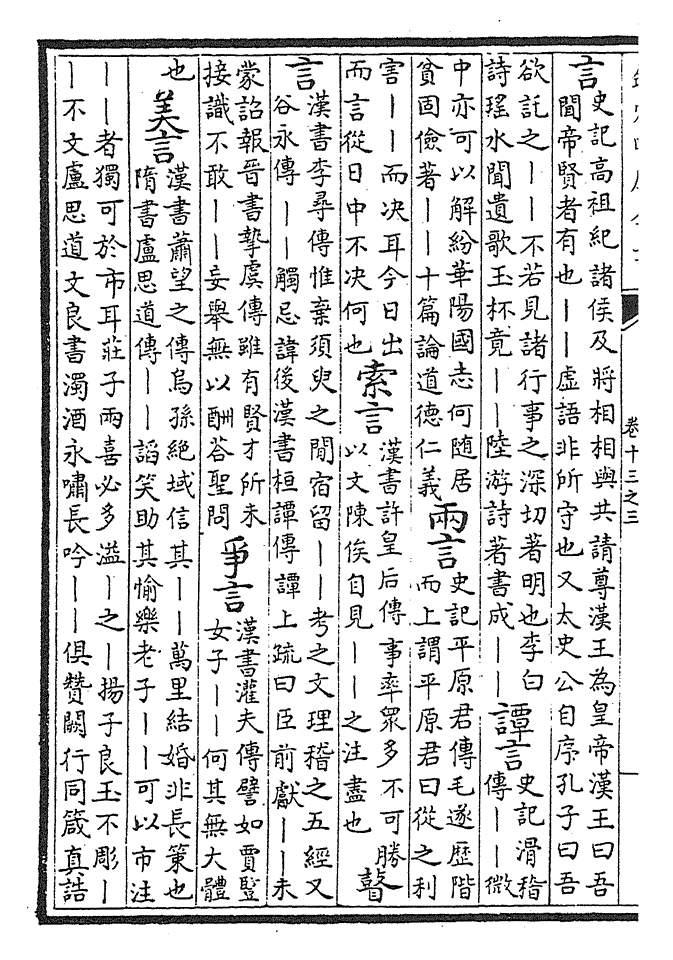 卷十三之三
言
史記高祖紀諸侯及將相相與共請尊漢王為皇帝漢王曰吾
聞帝賢者有也——虛語非所守也又太史公自序孔子曰吾
欲託之——不若見諸行事之深切著明也李白
詩瑤水聞遺歌玉杯竟——陸游詩著書成——
譚言
史記滑稽
傳——微
中亦可以解紛華陽國志何随居
貧固儉著——十篇論道德仁義
兩言
史記平原君傳毛遂歷階
而上謂平原君曰從之利
害——而决耳今日出
而言從日中不决何也
索言
漢書許皇后傳事率衆多不可勝
以文陳俟自見——之注盡也
瞽
言
漢書李尋傳惟棄須臾之間宿留——考之文理稽之五經又
谷永傳——觸忌諱後漢書桓譚傳譚上疏曰臣前獻——未
蒙詔報晉書摯虞傳雖有賢才所未
接識不敢——妄舉無以酬荅聖問
爭言
漢書灌夫傳譬如賈豎
女子——何其無大體
也
美言
漢書蕭望之傳烏孫絶域信其——萬里結婚非長策也
隋書盧思道傳——謟笑助其愉樂老子——可以市注
——者獨可於市耳莊子兩喜必多溢—之—揚子良玉不彫—
—不文盧思道文良書濁酒永嘯長吟——俱贊闕行同箴真誥